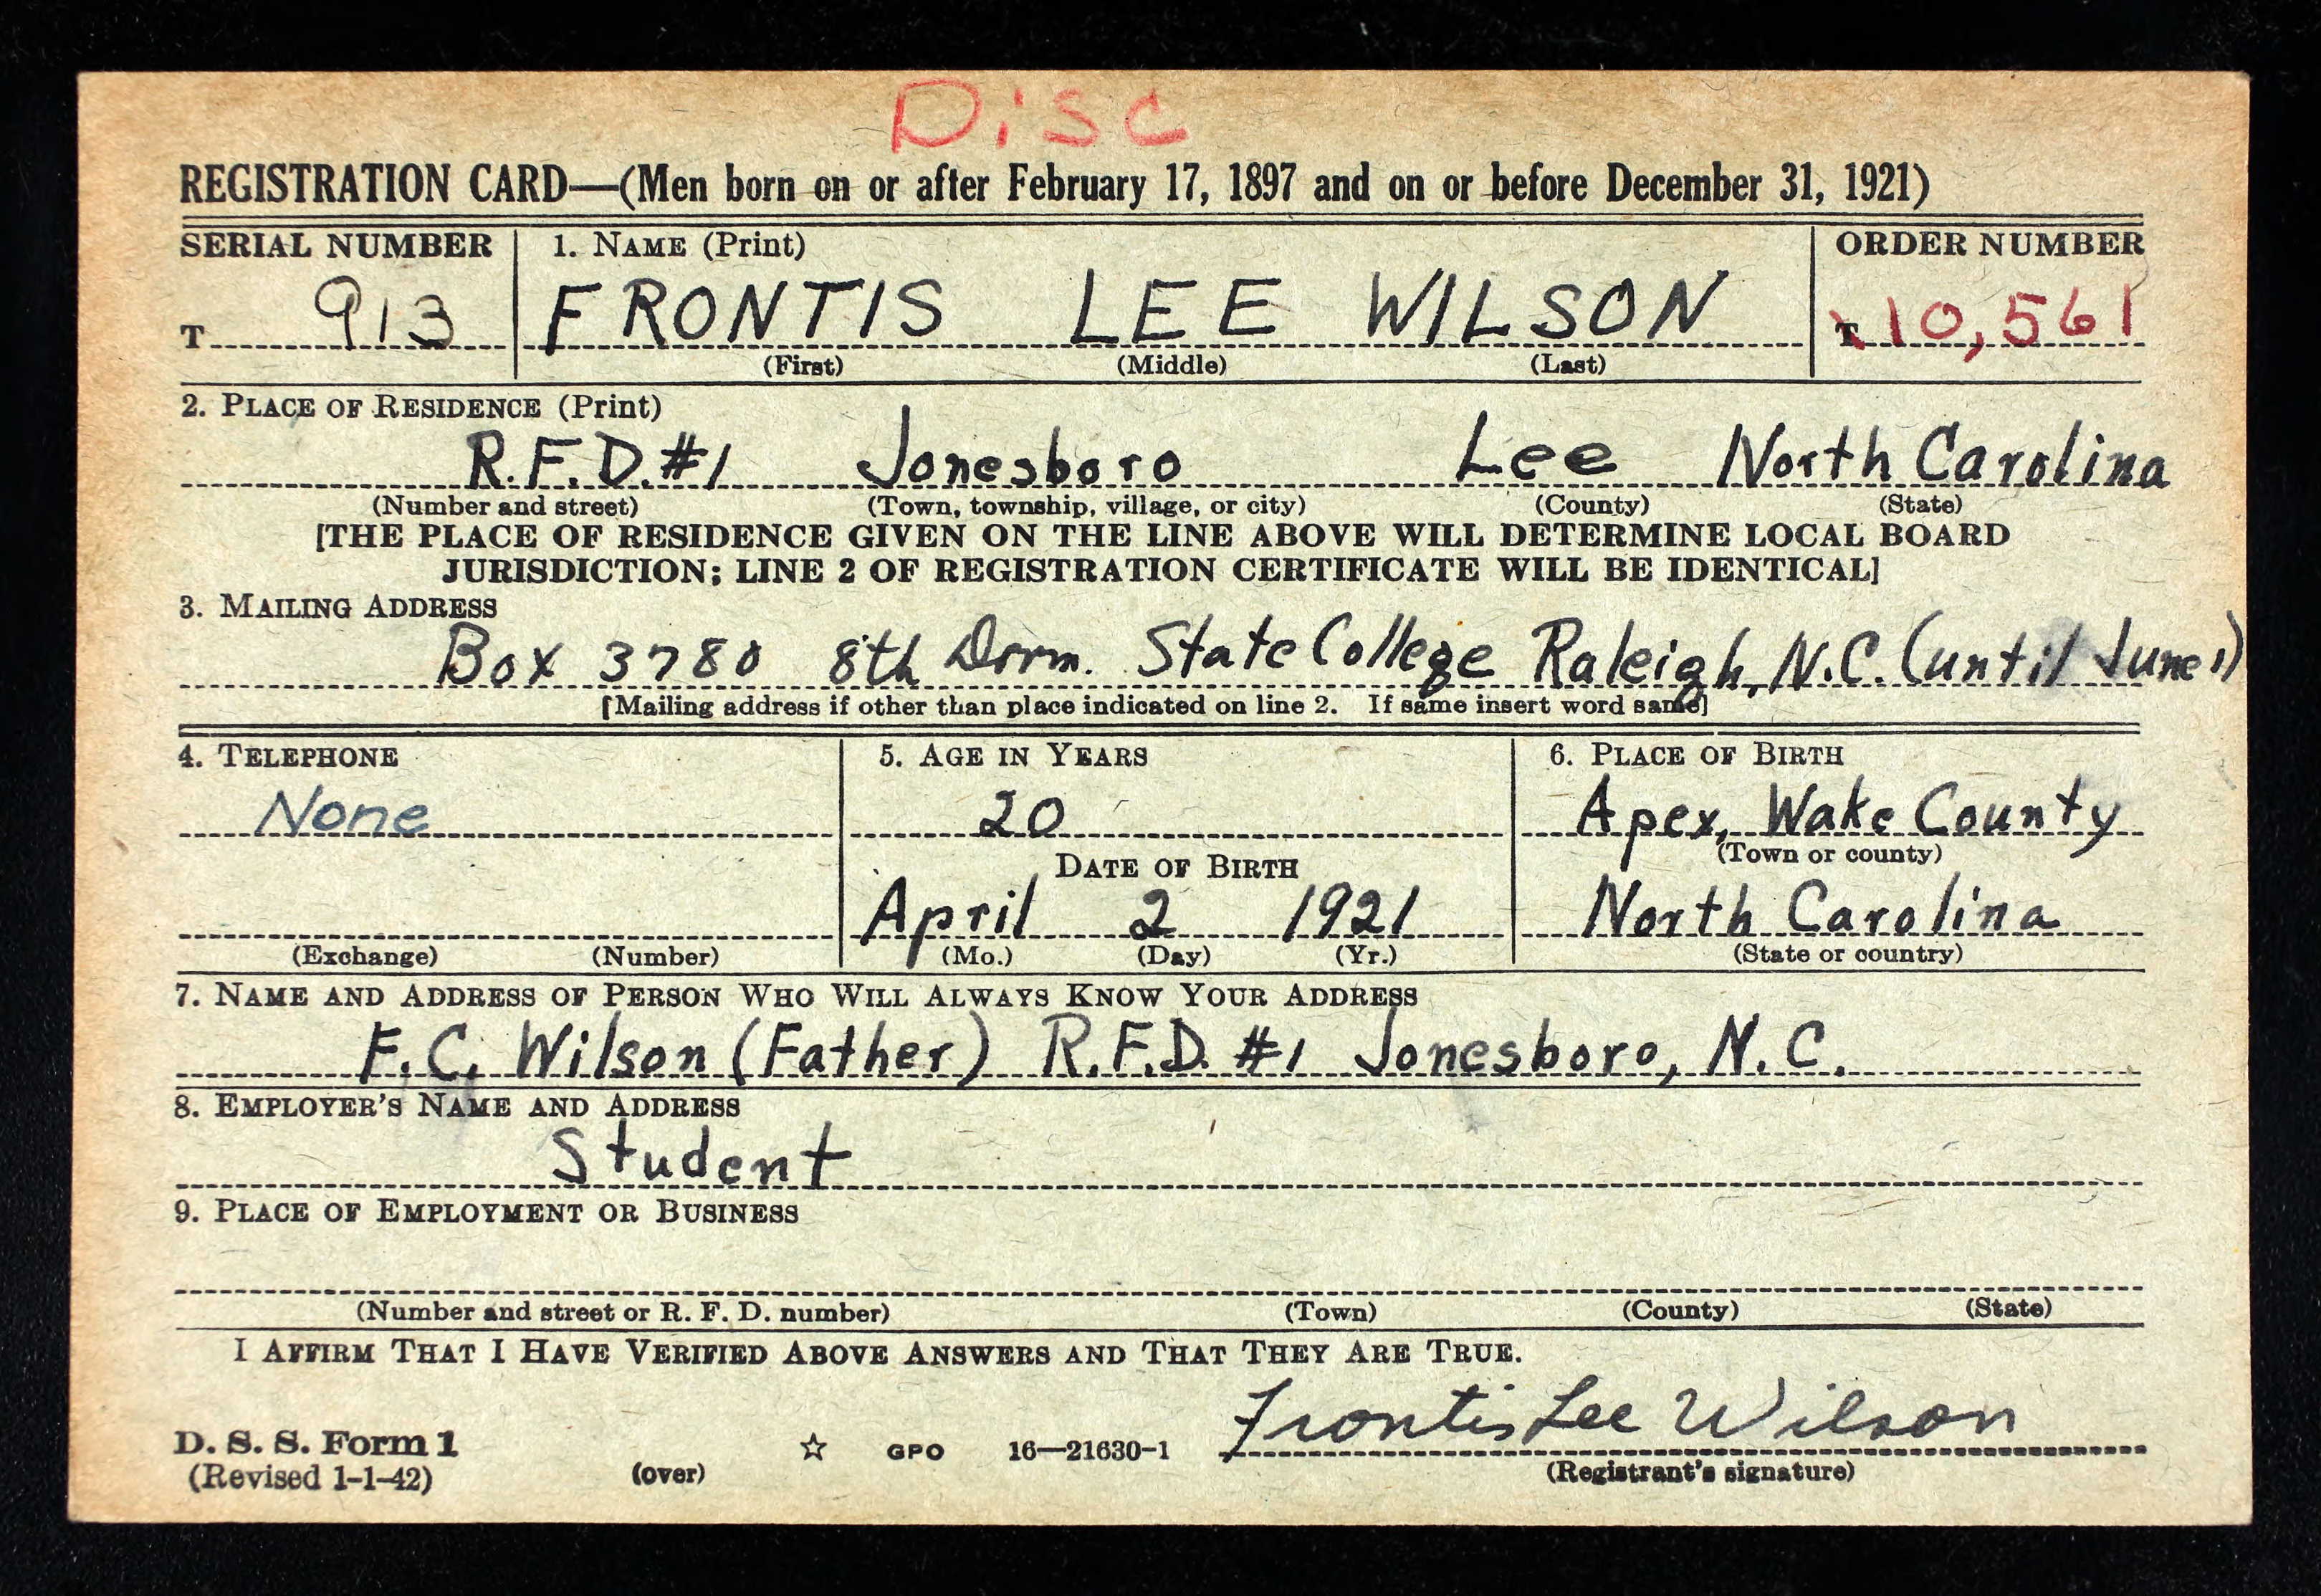 Disc
REGISTRATION CARD—(Men born on or after February 17, 1897 and on or before December 31, 1921)
SERIAL NUMBER 1. NAME (Print) ORDER NUMBER
T 913 FRONTIS LEE WILSON T 10,561
(First) (Middle) (Last)
2. PLACE OF RESIDENCE (Print)
R.F.D.#1 Jonesboro Lee North Carolina
(Number and street) (Town, township, village, or city) (County) (State)
[THE PLACE OF RESIDENCE GIVEN ON THE LINE ABOVE WILL DETERMINE LOCAL BOARD
JURISDICTION; LINE 2 OF REGISTRATION CERTIFICATE WILL BE IDENTICAL]
3. MAILING ADDRESS
Box 3780 8th Dorm. State College Raleigh, N.C. (until June 1)
[Mailing address if other than place indicated on line 2. If same insert word same]
4. TELEPHONE 5. AGE IN YEARS 6. PLACE OF BIRTH
None 20 Apex, Wake County
(Town or county)
DATE OF BIRTH
April 2 1921 North Carolina
(Exchange) (Number) (Mo.) (Day) (Yr.) (State or country)
7. NAME AND ADDRESS OF PERSON WHO WILL ALWAYS KNOW YOUR ADDRESS
F.C. Wilson (Father) R.F.D. #1 Jonesboro, N.C.
8. EMPLOYER'S NAME AND ADDRESS
Student
9. PLACE OF EMPLOYMENT OR BUSINESS
(Number and street or R. F. D. number) (Town) (County) (State)
I AFFIRM THAT I HAVE VERIFIED ABOVE ANSWERS AND THAT THEY ARE TRUE.
Frontis Lee Wilson
D. S. S. Form 1 ☆ GPO 16—21630-1
(Revised 1-1-42) (over) (Registrant's signature)